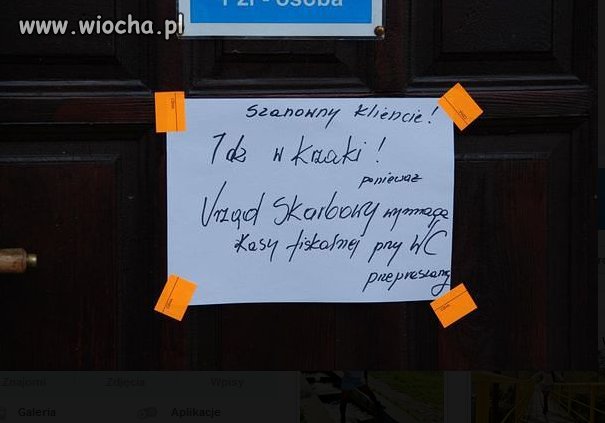 www.wiocha.pl
1 zł - osoba
Szanowny kliencie!
Idz w krzaki!
ponieważ
Urząd Skarbowy wymaga
kasy fiskalnej przy WC
przepraszamy
Znajomi Zdjęcia Wpisy
Galeria Aplikacje